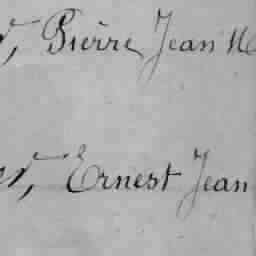 Pierre Jean
Ernest Jean